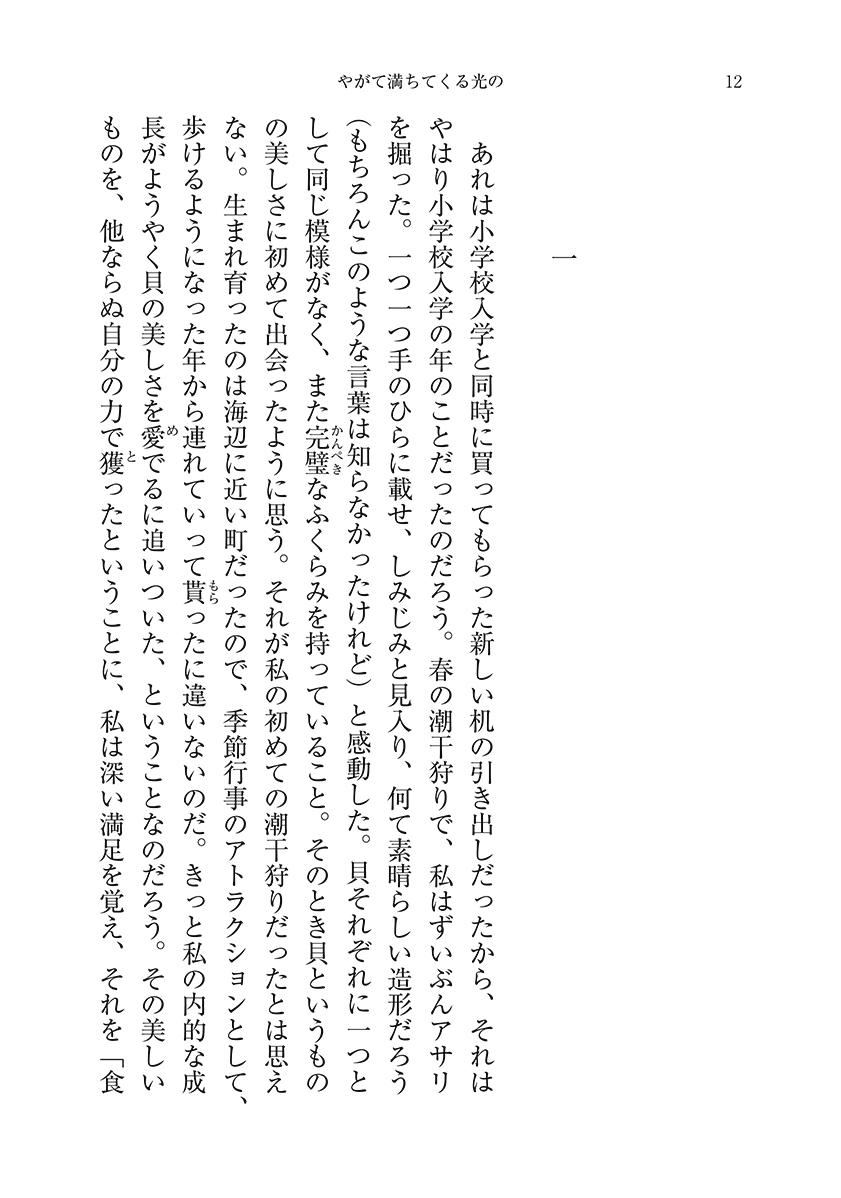 やがて満ちてくる光の
12
一
あれは小学校入学と同時に買ってもらった新しい机の引き出しだったから、それは
やはり小学校入学の年のことだったのだろう。春の潮干狩りで、私はずいぶんアサリ
を掘った。一つ一つ手のひらに載せ、しみじみと見入り、何て素晴らしい造形だろう
（もちろんこのような言葉は知らなかったけれど）と感動した。貝それぞれに一つと
して同じ模様がなく、また完璧なふくらみを持っていること。そのとき貝というもの
かんぺき
の美しさに初めて出会ったように思う。それが私の初めての潮干狩りだったとは思え
ない。生まれ育ったのは海辺に近い町だったので、季節行事のアトラクションとして、
歩けるようになった年から連れていって貰ったに違いないのだ。きっと私の内的な成
もら
長がようやく貝の美しさを愛でるに追いついた、ということなのだろう。その美しい
め
ものを、他ならぬ自分の力で獲ったということに、私は深い満足を覚え、それを「食
と